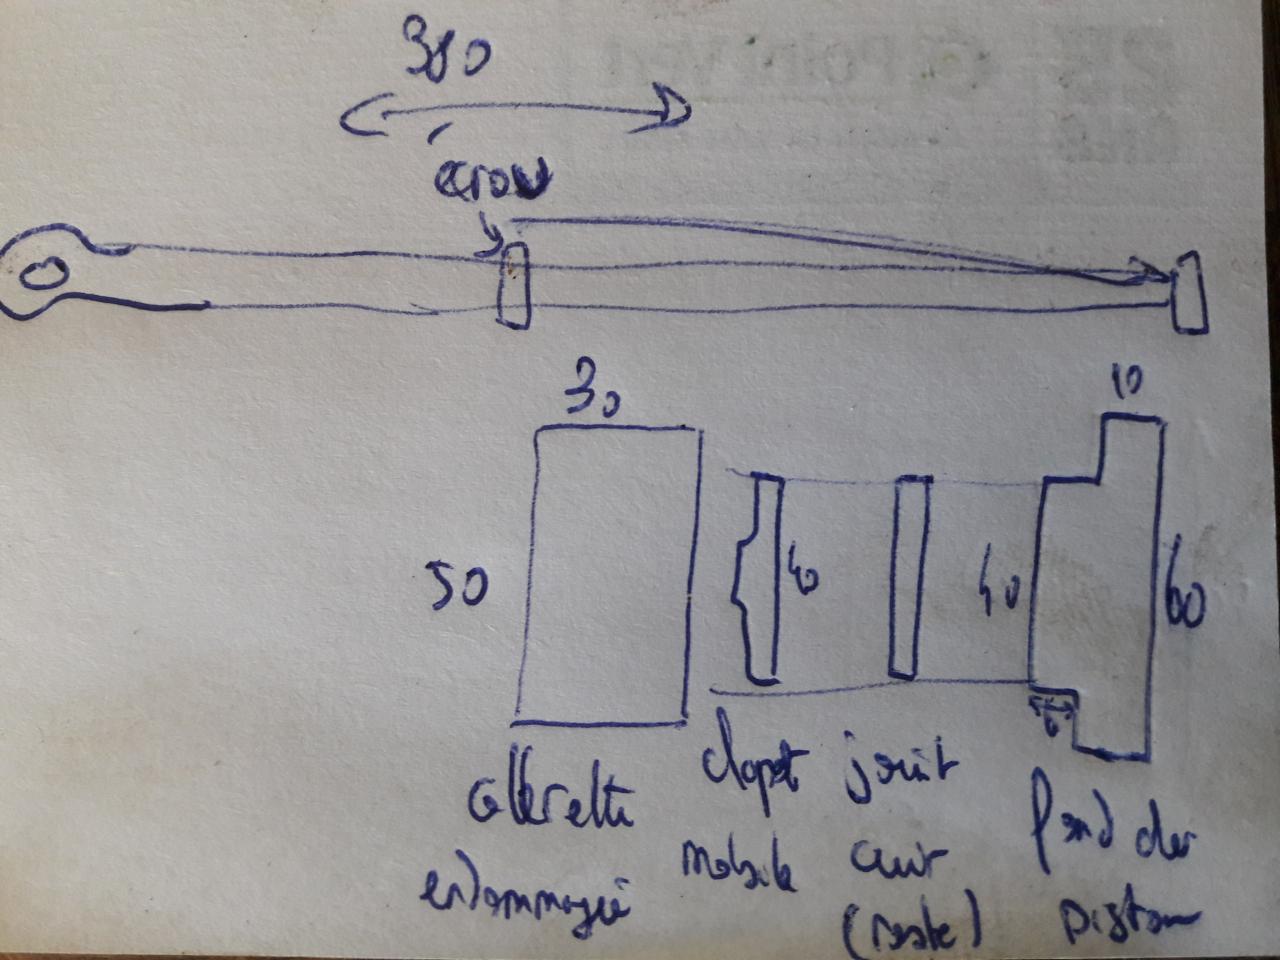 380
écrou
30
10
50
40
40
60
6
collerette
endommagée
clapet
mobile
joint
cuir
(reste)
fond de
piston